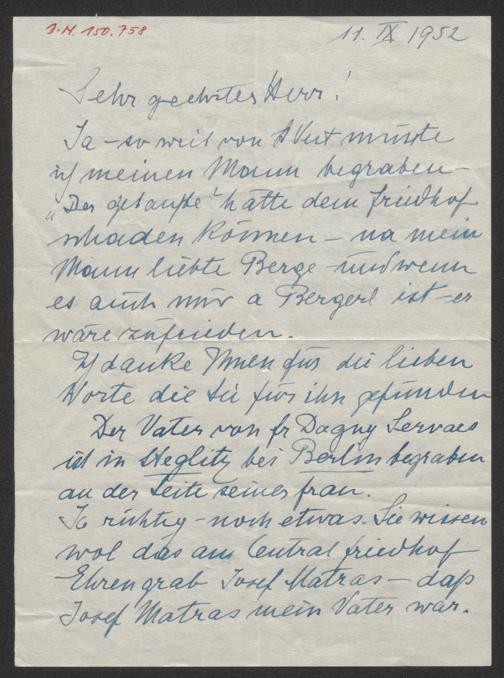 I.N. 150.758
11. IX 1952
Sehr geehrter Herr!
Ja – so weit von St Veit musste
ich meinen Mann begraben –
„Der getaufte" hätte dem Friedhof
schaden können – na mein
Mann liebte Berge – und wenn
es auch nur a Bergerl ist – er
wäre zufrieden.
Ich danke Ihnen für die lieben
Worte die Sie für ihn gefunden
Der Vater von fr Dagny Servaes
ist in Steglitz bei Berlin begraben
an der Seite seiner frau.
Ja richtig – noch etwas. Sie wissen
wol das am Central friedhof
Ehrengrab Josef Matras – daß
Josef Matras mein Vater war.